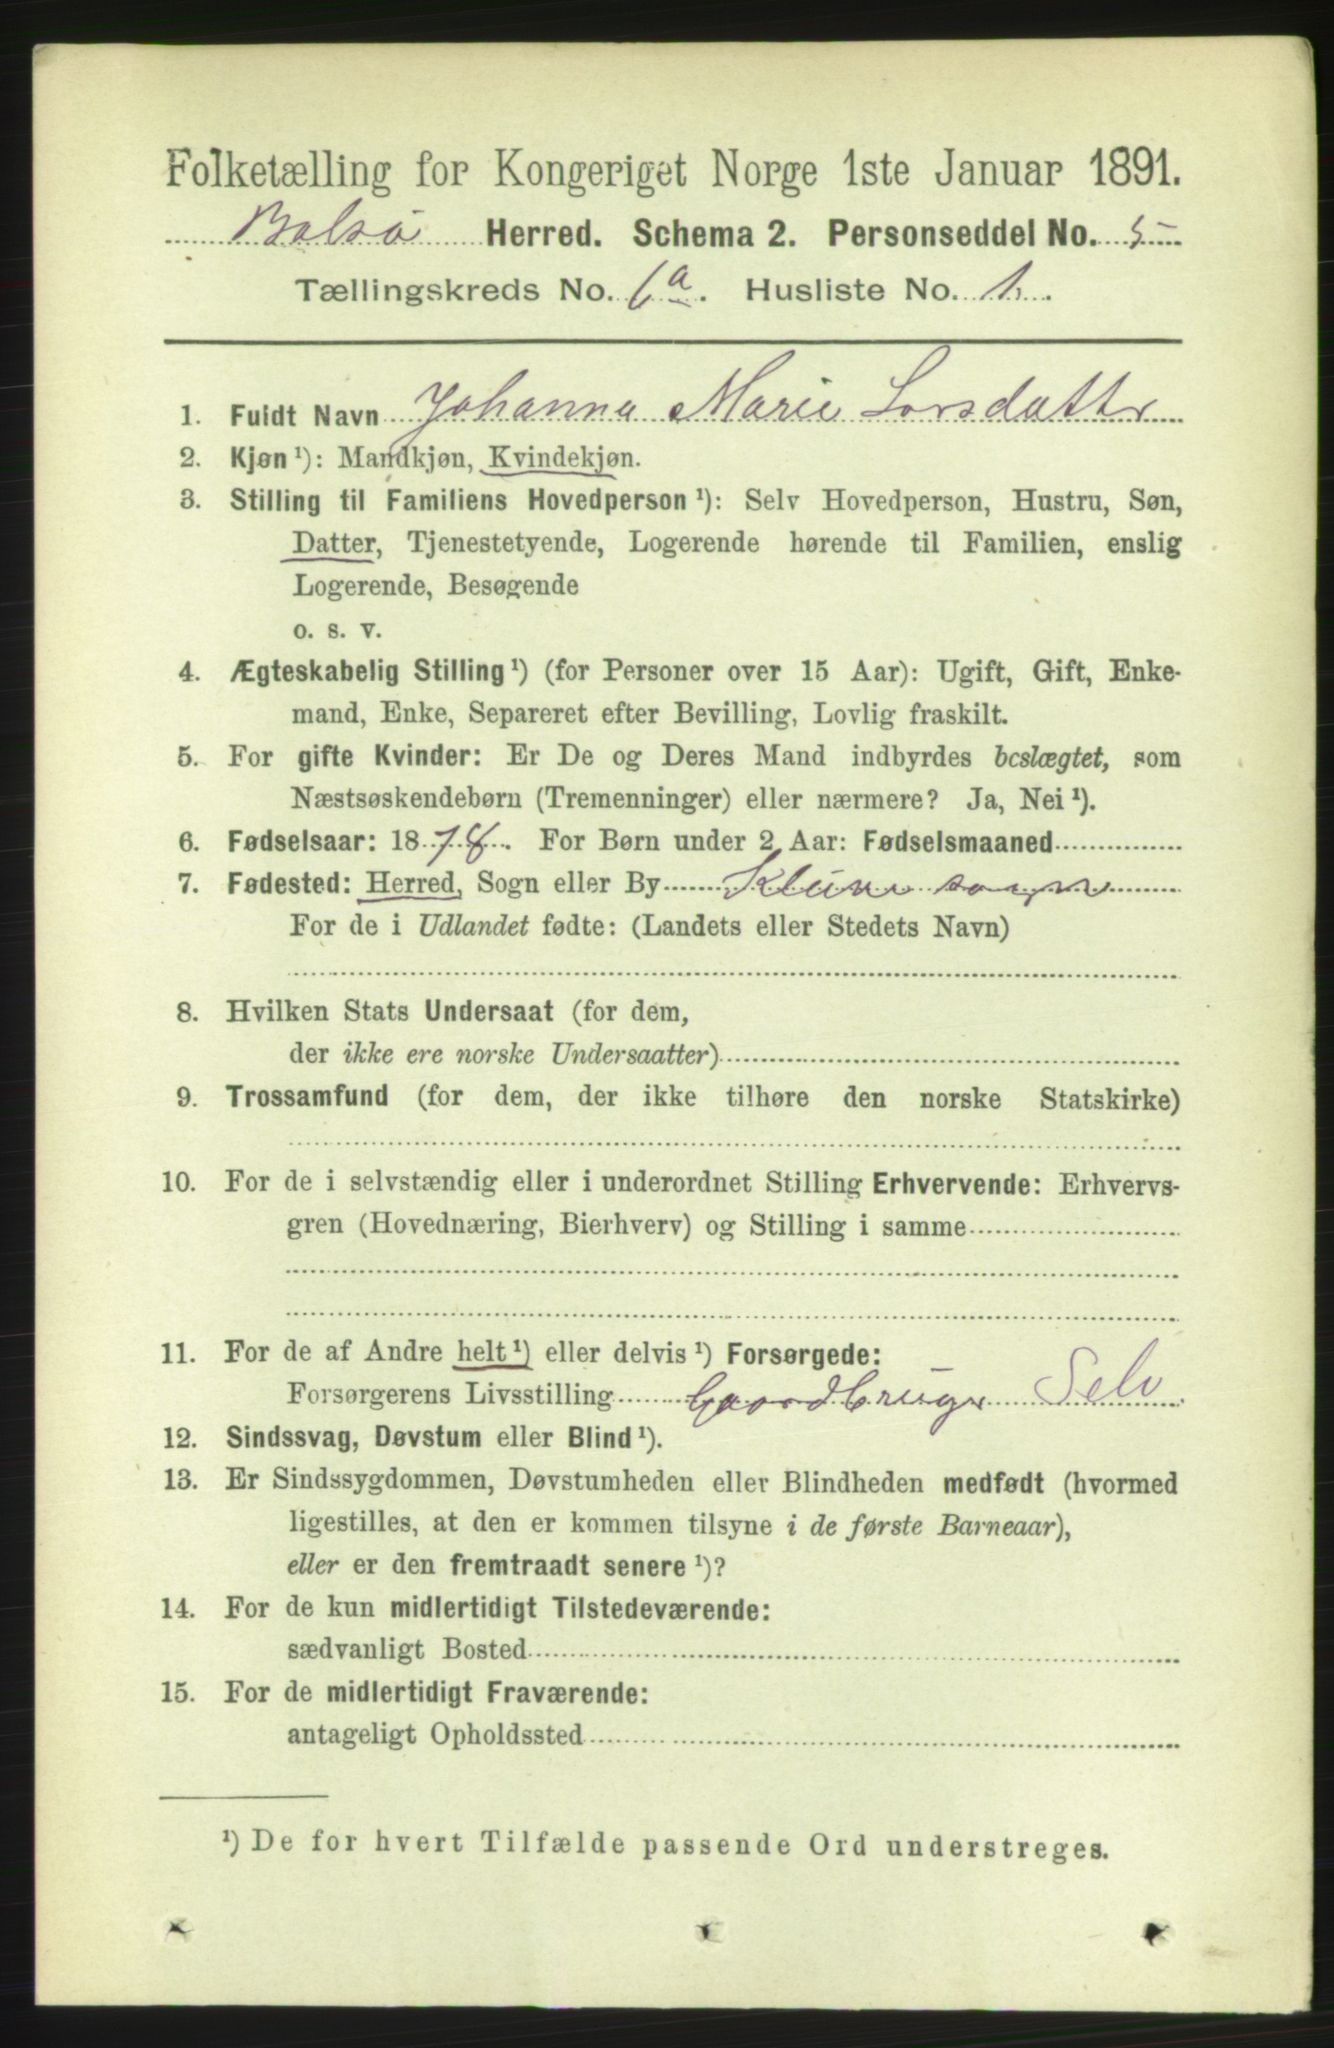 Folketælling for Kongeriget Norge 1ste Januar 1891.
Bolsø Herred. Schema 2. Personseddel No. 5
Tællingskreds No. 6a. Husliste No. 1.
1. Fuldt Navn Johanna Marie Larsdatter
2. Kjøn ¹): Mandkjøn, Kvindekjøn.
3. Stilling til Familiens Hovedperson ¹): Selv Hovedperson, Hustru, Søn,
Datter, Tjenestetyende, Logerende hørende til Familien, enslig
Logerende, Besøgende
o. s. v.
4. Ægteskabelig Stilling ¹) (for Personer over 15 Aar): Ugift, Gift, Enke-
mand, Enke, Separeret efter Bevilling, Lovlig fraskilt.
5. For gifte Kvinder: Er De og Deres Mand indbyrdes beslægtet, som
Næstsøskendebørn (Tremenninger) eller nærmere? Ja, Nei ¹).
6. Fødselsaar: 1878. For Børn under 2 Aar: Fødselsmaaned
7. Fødested: Herred, Sogn eller By Kleive sogn
For de i Udlandet fødte: (Landets eller Stedets Navn)
8. Hvilken Stats Undersaat (for dem,
der ikke ere norske Undersaatter)
9. Trossamfund (for dem, der ikke tilhøre den norske Statskirke)
10. For de i selvstændig eller i underordnet Stilling Erhvervende: Erhvervs-
gren (Hovednæring, Bierhverv) og Stilling i samme
11. For de af Andre helt ¹) eller delvis ¹) Forsørgede:
Forsørgerens Livsstilling Gaardbruger Selv.
12. Sindssvag, Døvstum eller Blind ¹).
13. Er Sindssygdommen, Døvstumheden eller Blindheden medfødt (hvormed
ligestilles, at den er kommen tilsyne i de første Barneaar),
eller er den fremtraadt senere ¹)?
14. For de kun midlertidigt Tilstedeværende:
sædvanligt Bosted
15. For de midlertidigt Fraværende:
antageligt Opholdssted
¹) De for hvert Tilfælde passende Ord understreges.